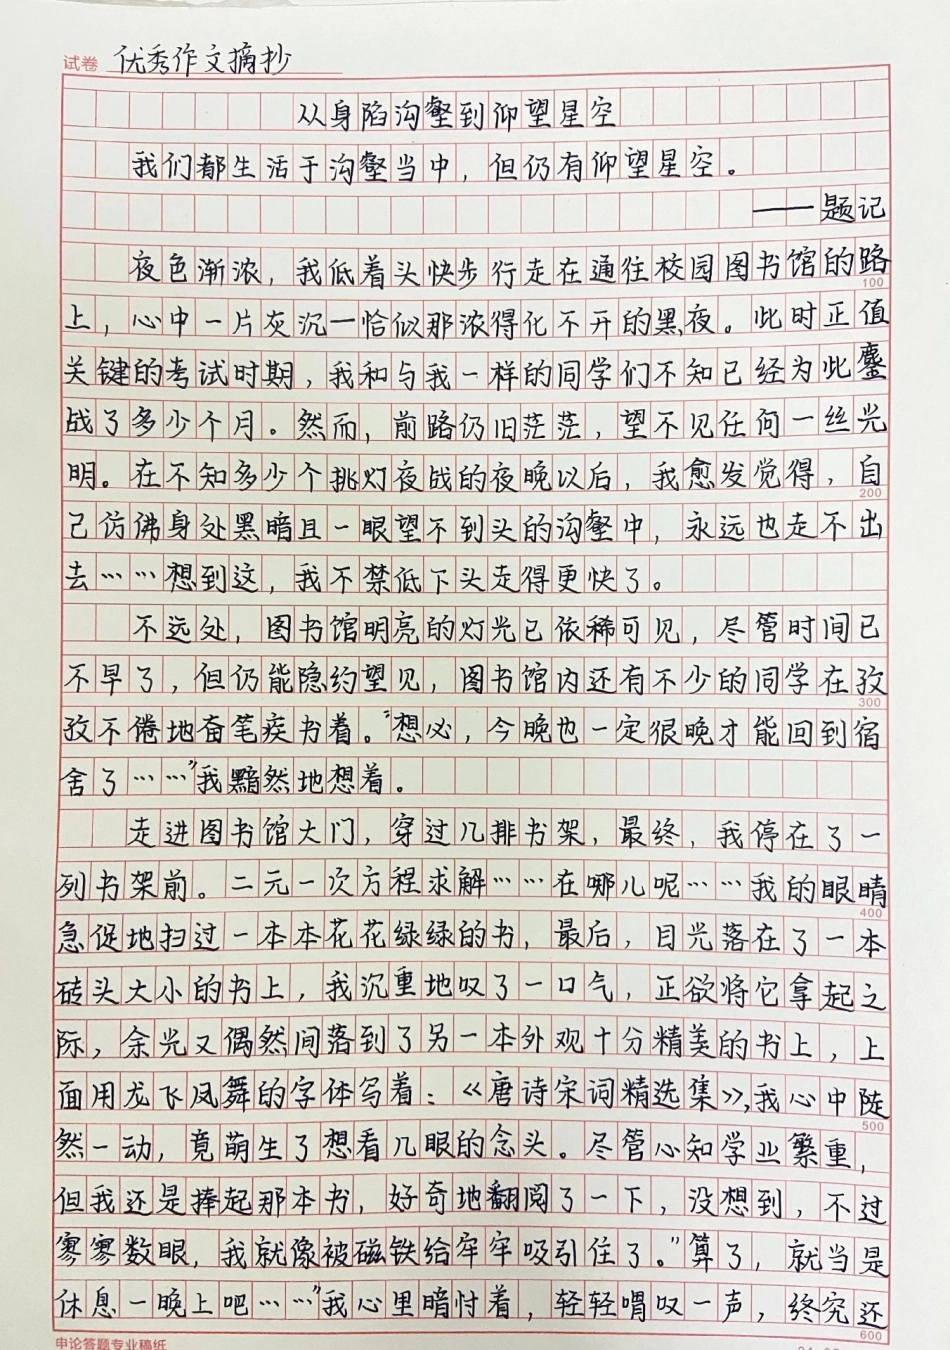 试卷 优秀作文摘抄
从身陷沟壑到仰望星空
我们都生活于沟壑当中，但仍有仰望星空。
——题记
夜色渐浓，我低着头快步行走在通往校园图书馆的路
100
上，心中一片灰沉一恰似那浓得化不开的黑夜。此时正值
关键的考试时期，我和与我一样的同学们不知已经为此鏖
战了多少个月。然而，前路仍旧茫茫，望不见任何一丝光
明。在不知多少个挑灯夜战的夜晚以后，我愈发觉得，自
200
己仿佛身处黑暗且一眼望不到头的沟壑中，永远也走不出
去……想到这，我不禁低下头走得更快了。
不远处，图书馆明亮的灯光已依稀可见，尽管时间已
不早了，但仍能隐约望见，图书馆内还有不少的同学在孜
300
孜不倦地奋笔疾书着。“想必，今晚也一定很晚才能回到宿
舍了……”我黯然地想着。
走进图书馆大门，穿过几排书架，最终，我停在了一
列书架前。二元一次方程求解……在哪儿呢……我的眼睛
400
急促地扫过一本本花花绿绿的书，最后，目光落在了一本
砖头大小的书上，我沉重地叹了一口气，正欲将它拿起之
际，余光又偶然间落到了另一本外观十分精美的书上，上
面用龙飞凤舞的字体写着：《唐诗宋词精选集》，我心中陡
500
然一动，竟萌生了想看几眼的念头。尽管心知学业繁重，
但我还是捧起那本书，好奇地翻阅了一下，没想到，不过
寥寥数眼，我就像被磁铁给牢牢吸引住了。“算了，就当是
休息一晚上吧……”我心里暗忖着，轻轻喟叹一声，终究还
600
申论答题专业稿纸